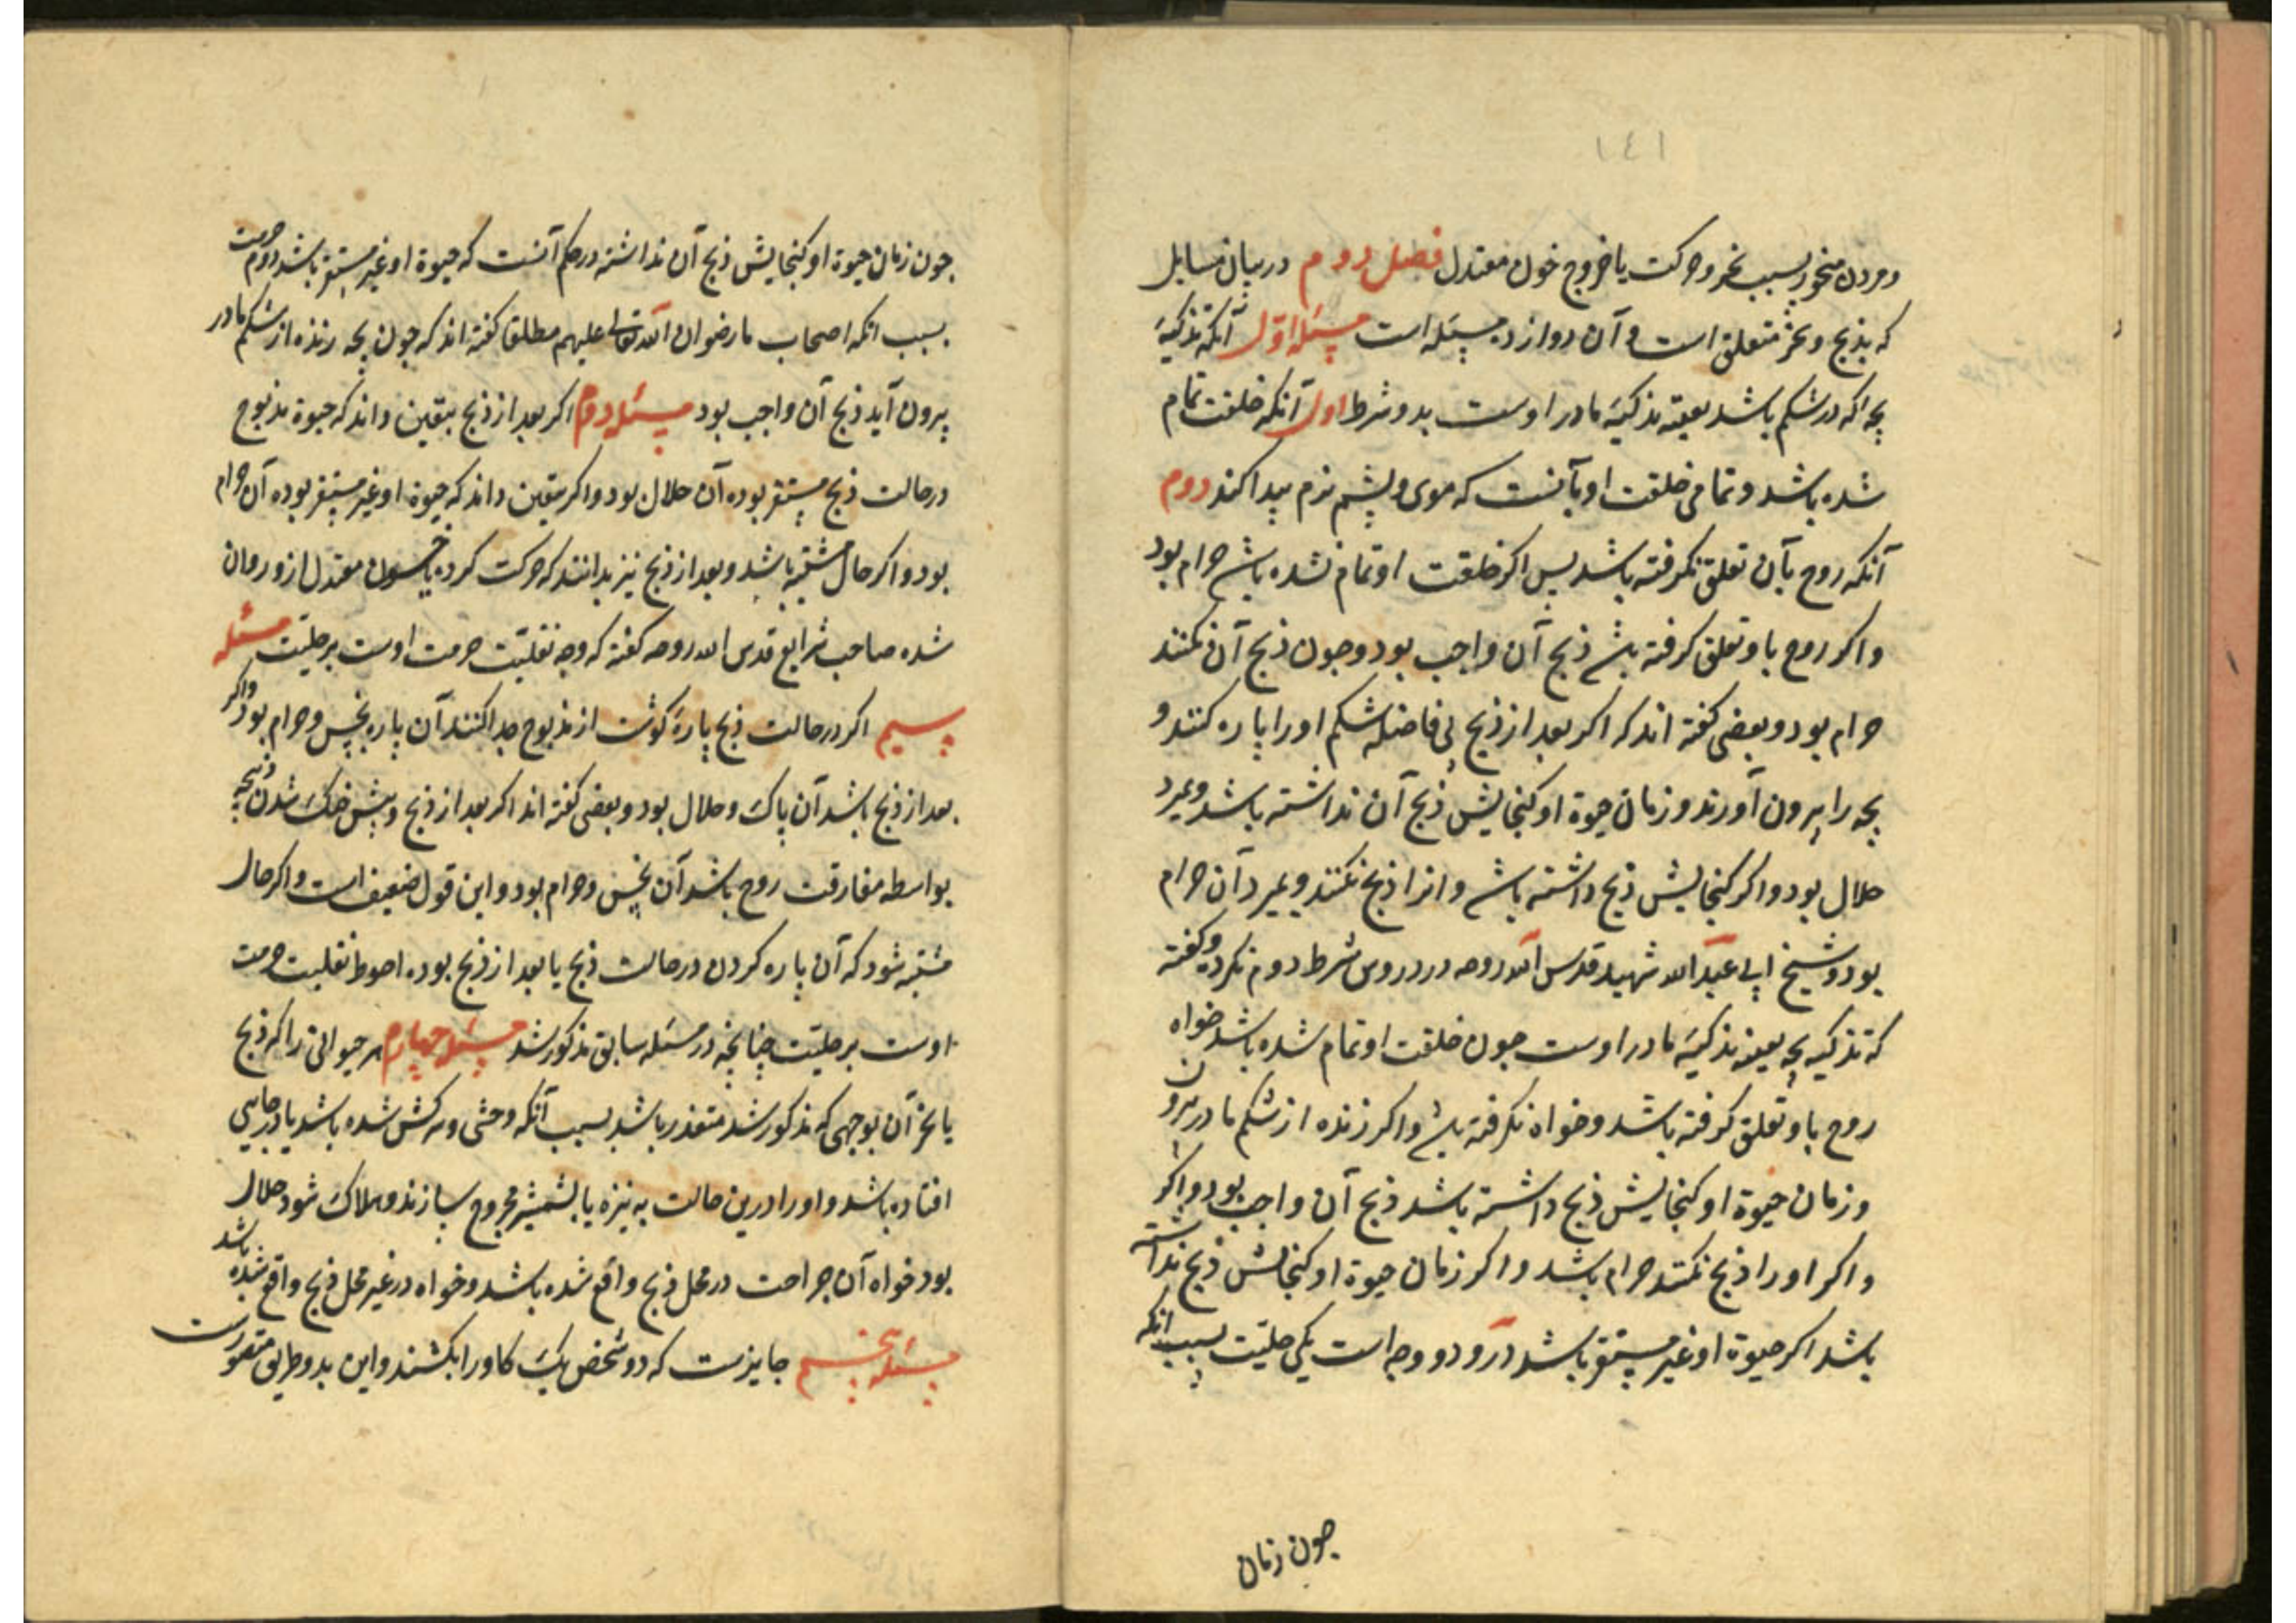 ١٤١
و مردن منحور بسبب نحر و حرکت یا خروج خون معتدل فصل دوم در بیان مسایل
که بذبح و نحر متعلق است و آن دوازده مسئله است مسئله اول آنکه تذکیهٔ
بچه که در شکم باشد بعینه تذکیهٔ مادر اوست بدو شرط اول آنکه خلقت تمام
شده باشد و تمامی خلقت او بآنست که موی و پشم نرم پیدا کند دوم
آنکه روح بآن تعلق نگرفته باشد پس اکر خلقت او تمام نشده باشد حرام بود
و اکر روح باو تعلق کرفته باشد ذبح آن واجب بود و چون ذبح آن نکنند
حرام بود و بعضی کفته اند که اکر بعد از ذبح بی فاصله شکم او را پاره کنند و
بچه را بیرون آورند و زمان حیوة او کنجایش ذبح آن نداشته باشد و بمیرد
حلال بود و اکر کنجایش ذبح داشته باشد و انرا ذبح نکنند و بمیرد آن حرام
بود و شیخ ابی عبد الله شهید قدس الله روحه در دروس شرط دوم نکرده و کفته
که تذکیه بچه بعینه تذکیهٔ مادر اوست چون خلقت او تمام شده باشد خواه
روح باو تعلق کرفته باشد و خواه نکرفته باشد و اکر زنده از شکم مادر بیرون
و زمان حیوة او کنجایش ذبح داشته باشد ذبح آن واجب بود و اکر
و اکر او را ذبح نکنند حرام باشد و اکر زمان حیوة او کنجایش ذبح نداشته
باشد اکر حیوة او غیر مستقر باشد درو دو وجه است یکی حلیّت بسبب انکه
چون زمان
چون زمان حیوة او کنجایش ذبح آن نداشته در حکم آنست که حیوة او غیر مستقر باشد دوم حرمت
بسبب انکه اصحاب ما رضوان الله تعالی علیهم مطلقا کفته اند که چون بچه زنده از شکم مادر
بیرون آید ذبح آن واجب بود مسئله دوم اکر بعد از ذبح بیقین داند که حیوة مذبوح
در حالت ذبح مستقر بوده آن حلال بود و اکر بیقین داند که حیوة او غیر مستقر بوده آن حرام
بود و اکر حال مشتبه باشد و بعد از ذبح نیز بدانند که حرکت کرده یا خون معتدل ازو روان
شده صاحب شرایع قدس الله روحه کفته که وجه تغلیب حرمت اوست بر حلیّت مسئله
سیم اکر در حالت ذبح پارهٔ کوشت از مذبوح جدا کنند آن پاره نجس و حرام بود و اکر
بعد از ذبح باشد آن پاک و حلال بود و بعضی کفته اند اکر بعد از ذبح و پیش خنک شدن ذبیحه
بواسطه مفارقت روح باشد آن نجس و حرام بود و این قول ضعیف است و اکر حال
مشتبه شود که آن پاره کردن در حالت ذبح یا بعد از ذبح بوده احوط تغلیب حرمت
اوست بر حلیّت چنانچه در مسئله سابق مذکور شد مسئله چهارم هر حیوانی را که ذبح
یا نحر آن بوجهی که مذکور شد متعذر باشد بسبب آنکه وحشی و سرکش شده باشد یا در چاهی
افتاده باشد و او را درین حالت به نیزه یا بشمشیر مجروح سازند و هلاک شود حلال
بود خواه آن جراحت در محل ذبح واقع شده باشد و خواه در غیر محل ذبح واقع شده باشد
مسئله پنجم جایزست که دو شخص یک کاو را بکشند و این بدو طریق متصورست